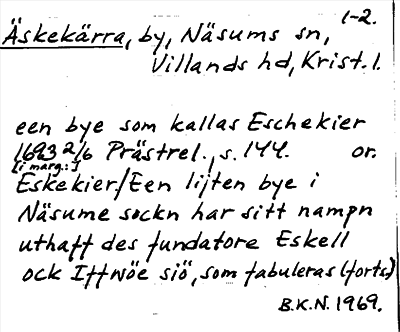 1-2.
Äskekärra, by, Näsums sn,
Villands hd, Krist. l.
een bye som kallas Eschekier
1693 2/6 Prästrel., s. 144. or.
[i marg.:]
Eskekier/Een lijten bye i
Näsume sockn har sitt nampn
uthaff des fundatore Eskell
ock Iffwöe siö, som fabuleras (forts.)
B.K.N. 1969.